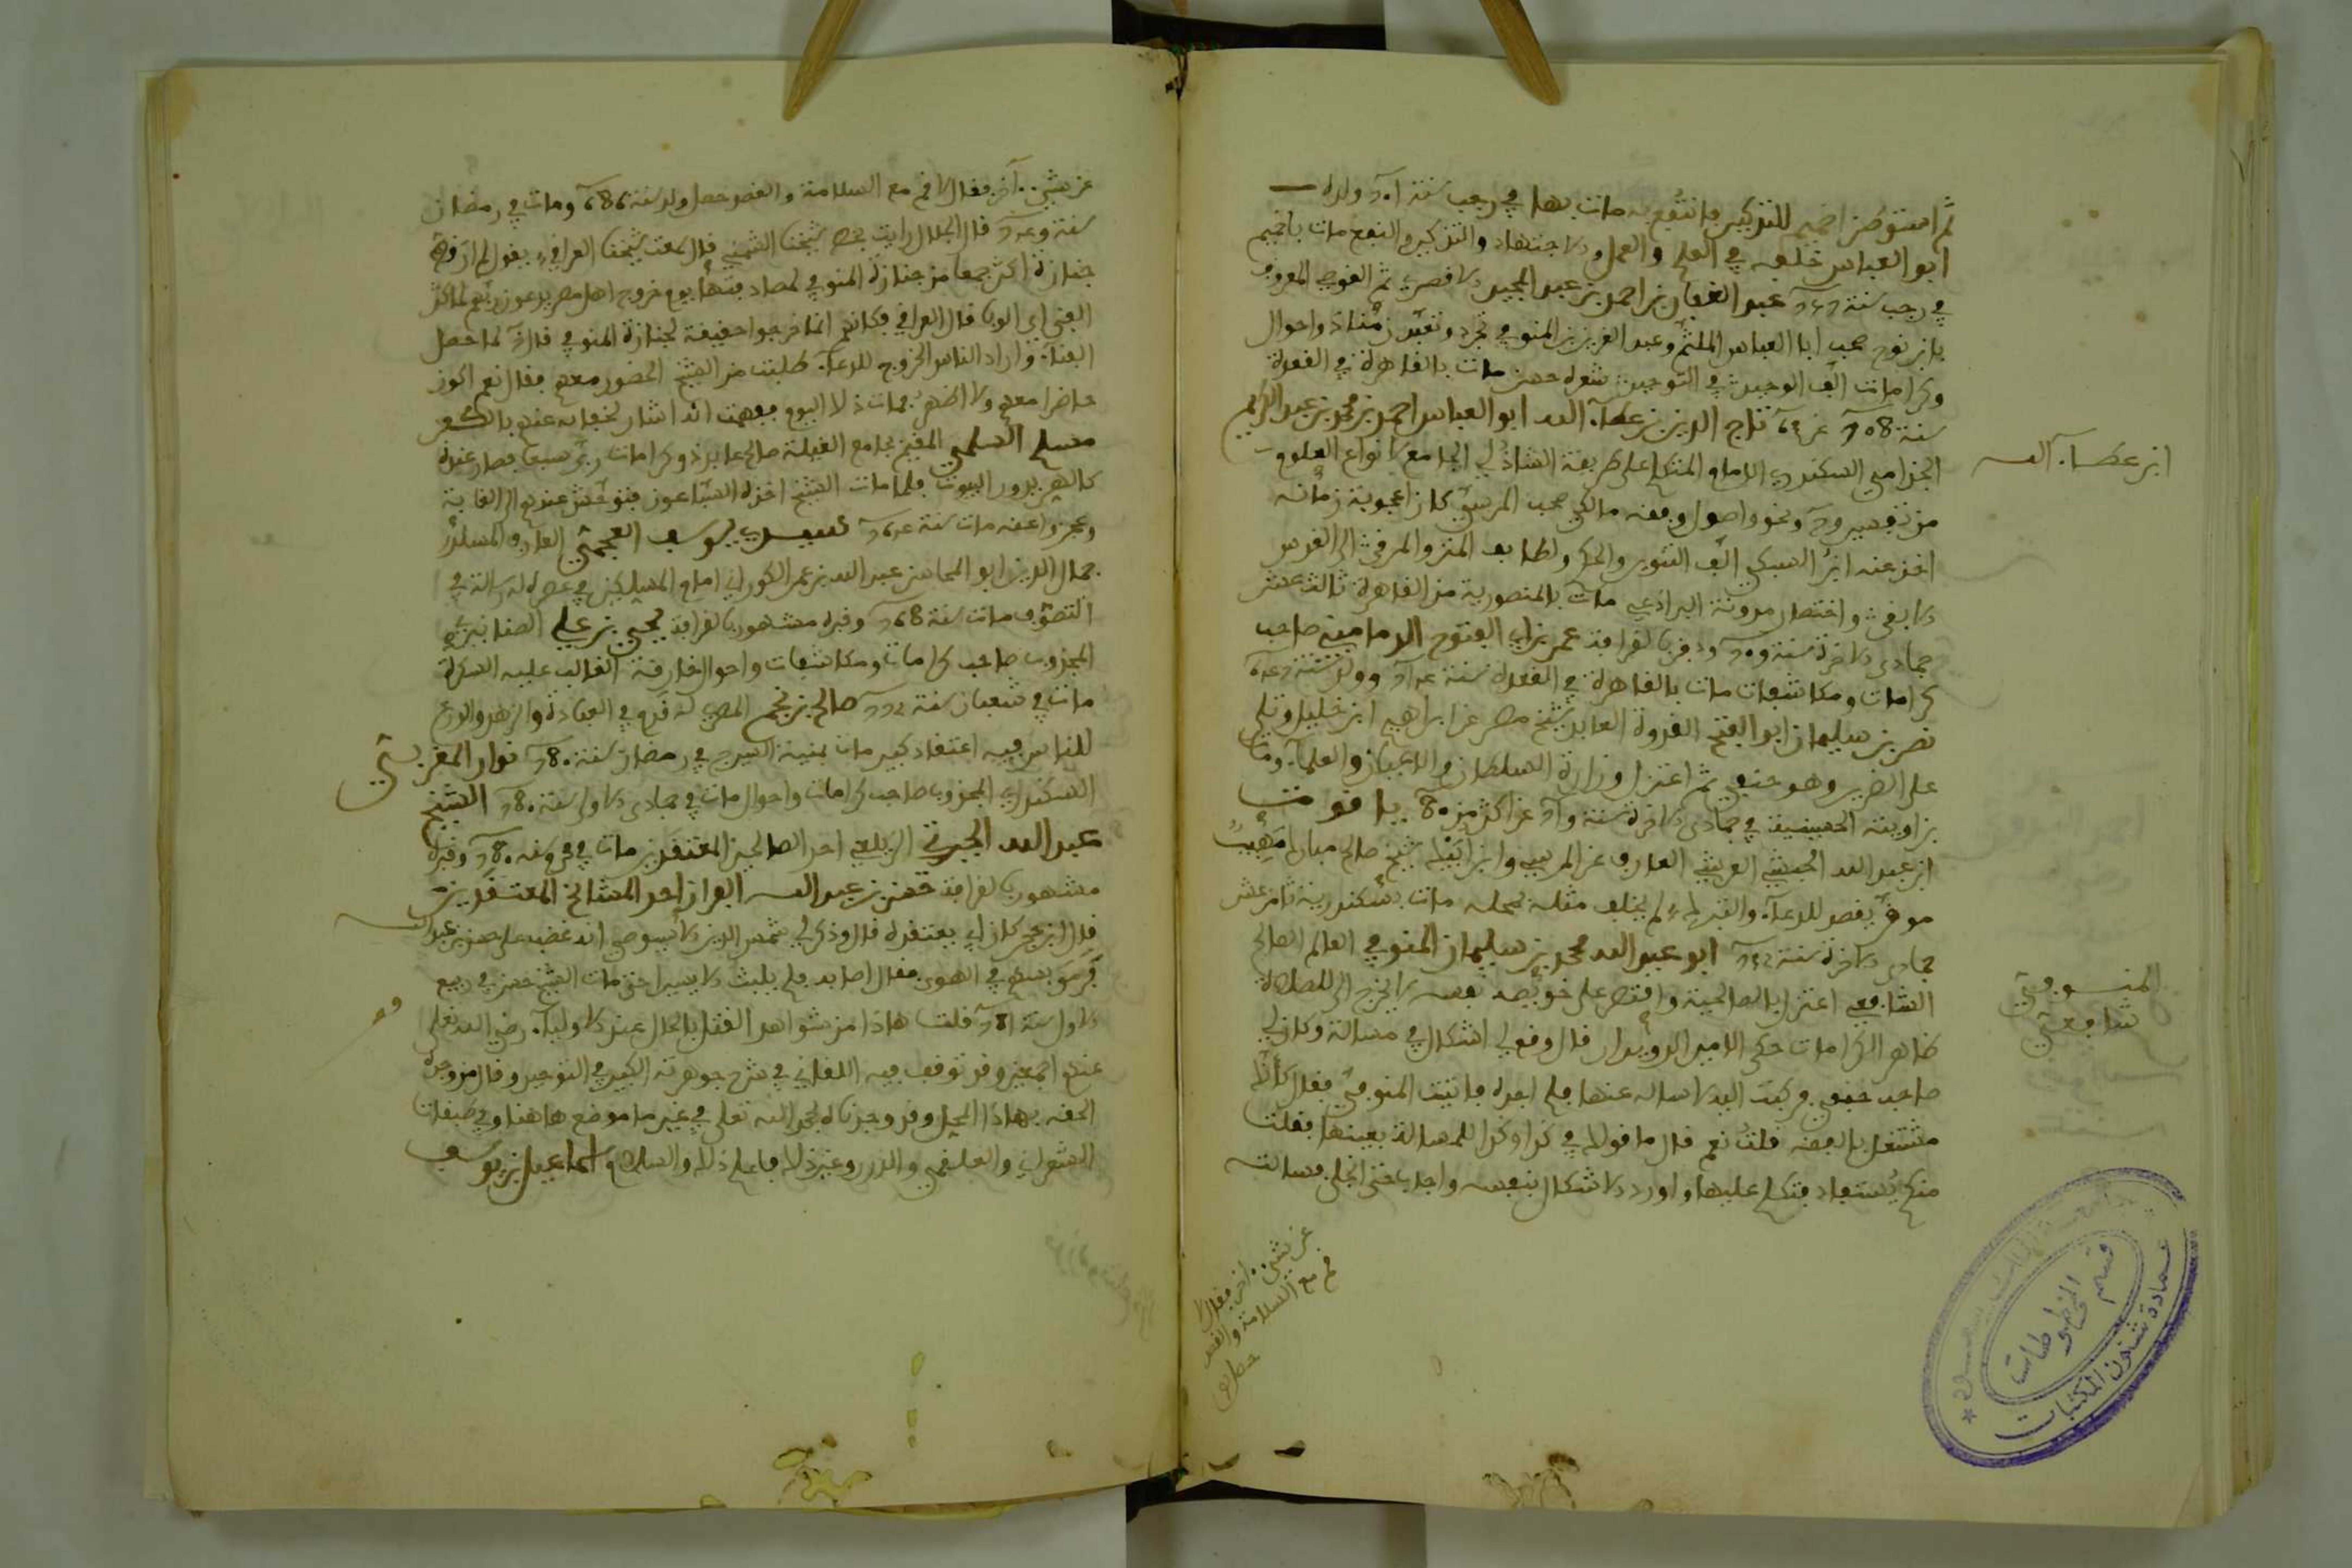 ثم استوطن اخميم للتذكير فانتفع به مات بها في رجب سنة 701 وولده
ابو العباس خلفه في العلم والعمل والاجتهاد والتذكير والنفع مات باخميم
في رجب سنة عبد الغفار بن احمد بن عبد المجيد الاقصري ثم القوصي المعروف
بابن نوح صحب ابا العباس الملثم وعبد العزيز المنوفي تجرد وتعبد زمانا ذو احوال
وكرامات الف الوحيد في التوحيد شعره حسن مات بالقاهرة في القعدة
سنة 708 تاج الدين بن عطاء الله ابو العباس احمد بن محمد بن عبد الكريم
الجذامي السكندري الامام المتكلم على طريقة الشاذلي الجامع لانواع العلوم
من تفسير وح ونحو واصول وفقه مالكي صحب المرسي كان اعجوبة زمانه
اخذ عنه ابن السبكي الف التنوير والحكم ولطايف المنن والمرقى الى القدس
الابقى واختصار مدونة البراذعي مات بالمنصورية من القاهرة ثالث عشر
جمادى الاخرة سنة 709 ودفن بالقرافة عمر بن ابي الفتوح الدماميني صاحب
كرامات ومكاشفات مات بالقاهرة في القعدة سنة وولد سنة
نصر بن سليمان ابو الفتح القدوة العابد شيخ مصر عن ابراهيم ابن خليل وتلى
على الضرير وهو حنفي ثم اعتزل وزاره السلطان والاعيان والعلماء ومات
بزاويته الحسينية في جمادى الاخرة سنة عن اكثر من 80 ياقوت
ابن عبد الله الحبشي القرشي العارف عن المرسي وابن شيخ صالح مبارك مهيب
موقر يقصد للدعاء والتبرك لم يخلف مثله محله مات بسكندرية ثامن عشر
جمادى الاخرة سنة 732 ابو عبد الله محمد بن سليمان المنوفي العالم الصالح
الشافعي اعتزل بالصالحية واقتصر على خويصة نفسه لا يخرج الا للصلاة
ظاهر الكرامات حكى الامير الدويدار قال وقع لي اشكال في مسالة وكان لي
صاحب حنفي فركبت اليه لاساله عنها فلم اجده فاتيت المنوفي فقال كانك
مشتغل بالفقه قلت نعم قال ما قولكم في كذا وكذا للمسالة بعينها فقلت
منكم يستفاد فتكلم عليها واورد الاشكال بنفسه واجاب حتى انجلى فسالته
ابن عطاء الله
المنوفي
شافعي
عن شيء اخر فقال لا
قم مع السلامة والقصد
حصل
قسم المخطوطات
عمادة شئون المكتبات
عن شيء اخر فقال لا قم مع السلامة والقصد حصل ولد سنة 686 ومات في رمضان
سنة قال الجلال رايت بخط شيخنا الشمني قال سمعت شيخنا العراقي يقول لم ار قط
جنازة اكثر جمعا من جنازة المنوفي لمصادفتها يوم خروج اهل مصر يدعون ربهم لما كثر
الفنى اي الوبا قال العراقي فكانهم انما خرجوا حقيقة لجنازة المنوفي قال لما حصل
الفناء واراد الناس الخروج للدعاء طلبت من الشيخ الحضور معهم فقال نعم اكون
حاضرا معهم ولا اظهر فمات ذلك اليوم ففهمت انه اشار لخفائه عنهم بالكفن
مسلم السلمي المقيم بجامع الفيلة صالح عابد ذو كرامات ربى سبعا فصار عنده
كالهر يدور البيوت فلما مات الشيخ اخذه السباعون فتوحش عندهم الى الغاية
وعجزوا عنه مات سنة سيدي يوسف العجمي العارف المسلك
جمال الدين ابو المحاسن عبد الله بن عمر الكوراني امام المسلكين في عصره له رسالة في
التصوف مات سنة 768 وقبره مشهور بالقرافة يحيى بن علي الصنافيري
المجذوب صاحب كرامات ومكاشفات واحوال خارقة الغالب عليه السكرة
مات في شعبان سنة 772 صالح بن نجم المصري له قدم في العبادة والزهد والورع
للناس فيه اعتقاد كبير مات بمنية السيرج في رمضان سنة 780 نهار المغربي
السكندري المجذوب صاحب كرامات واحوال مات في جمادى الاولى سنة 780 الشيخ
عبد الله الجبرتي الزيلعي احد الصالحين المعتقدين مات في محرم سنة 780 وقبره
مشهور بالقرافة حسن بن عبد الله احد المشائخ المعتقدين
قال ابن حجر كان ابي يعتقده قال وذكر لي شمس الدين الاسيوطي انه غضب على حسن بن عبد الله
فرمى بسهم في الهوى فقال اصابه فلم يلبث الا يسيرا حتى مات الشيخ حسن في ربيع
الاول سنة 781 قلت هاذا من شواهد القتل بالحال عند الاولياء رضي الله تعلى
عنهم اجمعين وقد توقف فيه اللقاني في شرح جوهرته الكبير في التوحيد وقال من وجده
الحقه بهاذا المحل وقد وجدناه لحمد الله تعلى في غير ما موضع هاهنا وفي طبقات
الشعراني والعلقمي والدرر وغير ذلك فاعلم ذلك والسلام اسماعيل بن يوسف